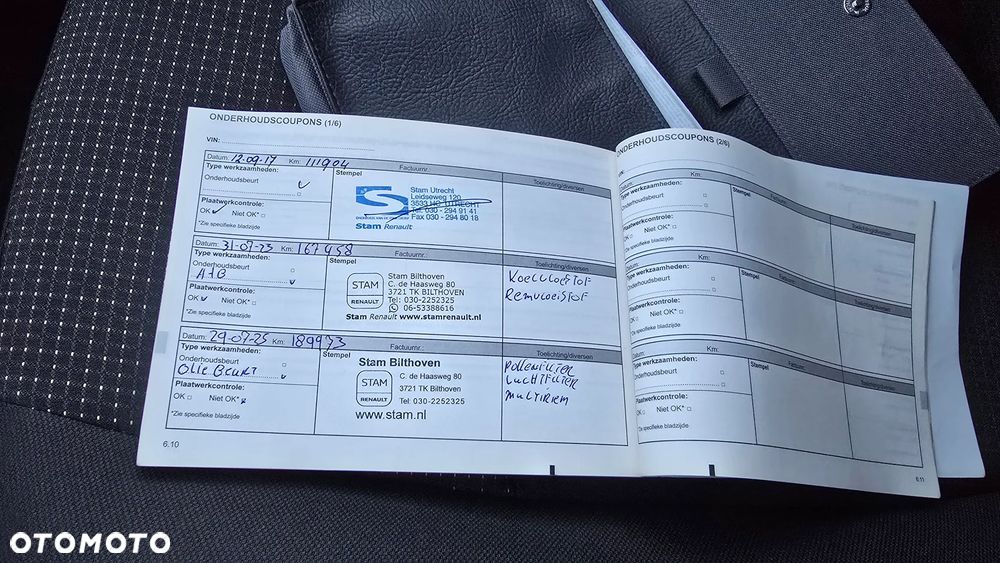 ONDERHOUDSCOUPONS (1/6)
VIN:
Datum: 12-09-17 Km: 111904 Factuurnr.:
Type werkzaamheden: Stempel Toelichting/diversen
Onderhoudsbeurt
Plaatwerkcontrole:
OK Niet OK*
*Zie specifieke bladzijde
Stam Utrecht
Leidseweg 120
3533 HC UTRECHT
Tel: 030 - 294 91 41
Fax 030 - 294 80 18
Stam Renault
Datum: 31-07-23 Km: 167458
Type werkzaamheden: Stempel Toelichting/diversen
Onderhoudsbeurt
Plaatwerkcontrole:
OK Niet OK*
*Zie specifieke bladzijde
STAM
RENAULT
Stam Bilthoven
C. de Haasweg 80
3721 TK BILTHOVEN
Tel: 030-2252325
06-53388616
Stam Renault www.stamrenault.nl
Koelvloeistof
Remvloeistof
Datum: 29-07-25 Km: 189973 Factuurnr.:
Type werkzaamheden: Stempel Toelichting/diversen
Onderhoudsbeurt
Olie Beurt
Plaatwerkcontrole:
OK Niet OK*
*Zie specifieke bladzijde
Stam Bilthoven
STAM
RENAULT
C. de Haasweg 80
3721 TK Bilthoven
Tel: 030-2252325
www.stam.nl
Pollenfilter
Luchtfilter
Multiriem
6.10
ONDERHOUDSCOUPONS (2/6)
VIN:
Datum: Km:
Type werkzaamheden: Stempel Toelichting/diversen
Onderhoudsbeurt
Plaatwerkcontrole:
OK Niet OK*
*Zie specifieke bladzijde
Datum: Km:
Type werkzaamheden: Stempel Toelichting/diversen
Onderhoudsbeurt
Plaatwerkcontrole:
OK Niet OK*
*Zie specifieke bladzijde
Km:
Type werkzaamheden: Stempel Toelichting/diversen
Onderhoudsbeurt
Plaatwerkcontrole:
OK Niet OK*
*Zie specifieke bladzijde
6.11
OTOMOTO